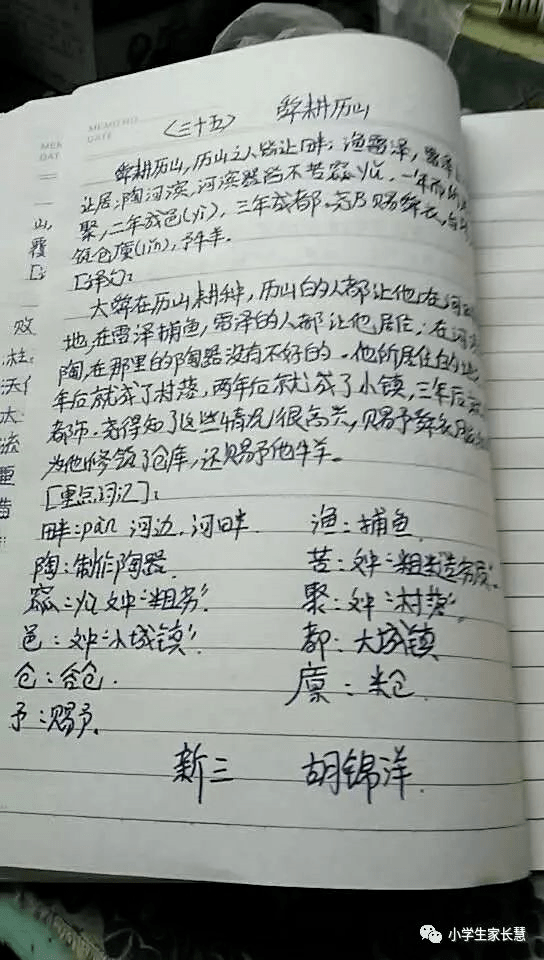 MEMO NO.
DATE
MEM
DAT
〈三十五〉 舜耕历山
舜耕历山,历山之人皆让畔;渔雷泽,雷泽
让居;陶河滨,河滨器皆不苦窳yǔ。一年而所
聚,二年成邑(yì),三年成都。尧乃赐舜衣,
筑仓廪(lǐn),予牛羊。
[译文]:
大舜在历山耕种,历山白的人都让他在河
地,在雷泽捕鱼,雷泽的人都让他居住;在河
陶,在那里的陶器没有不好的。他所居住的地
年后就成了村落,两年后就成了小镇,三年后
都市。尧得知了这些情况很高兴,赐予舜衣服
为他修筑了仓库,还赐予他牛羊。
[重点词汇]:
畔:pàn 河边、河畔 渔:捕鱼
陶:制作陶器 苦:文中"粗
窳:yǔ 文中"粗劣" 聚:文中"村落"。
邑:文中"小城镇" 都:大城镇
仓:谷仓. 廪:米仓
予:赐予.
新三 胡锦洋.
山,
覆
败
大
流
小学生家长慧